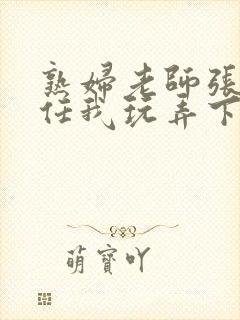 熟婦老師張
任我玩弄下
萌寶吖